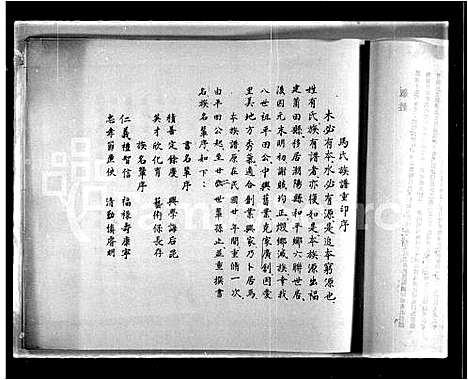 馬氏族譜重印序
木必有本水必有源是追本窮源也
姓有氏族有譜者亦復如是本族源出福
建莆田縣移居潮陽縣和平鄉六聯世居
後因元末明初謝賊均正燬鄉滅族幸我
八世祖平田公中興舊業克家廣創因愛
里美地方秀氣適合創業興家乃卜居焉
本族譜原在民國廿年間重脩一次
由平田公起至廿世輩孫止並重撰書
名族名輩序如下：
書名輩序
積善定餘慶　興學誨后昆
英才欣化育　藝術保長存
族名輩序
仁義禮智信　福祿壽康寧
忠孝節廉　清勤慎睿明